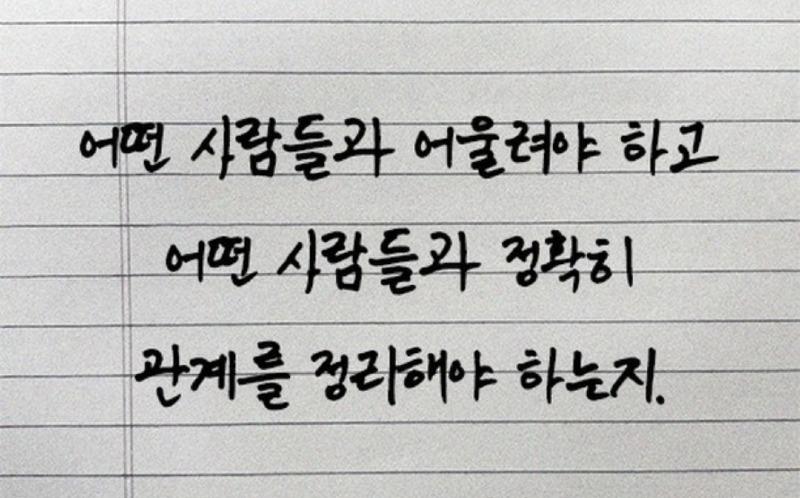 어떤 사람들과 어울려야 하고
어떤 사람들과 정확히
관계를 정리해야 하는지.